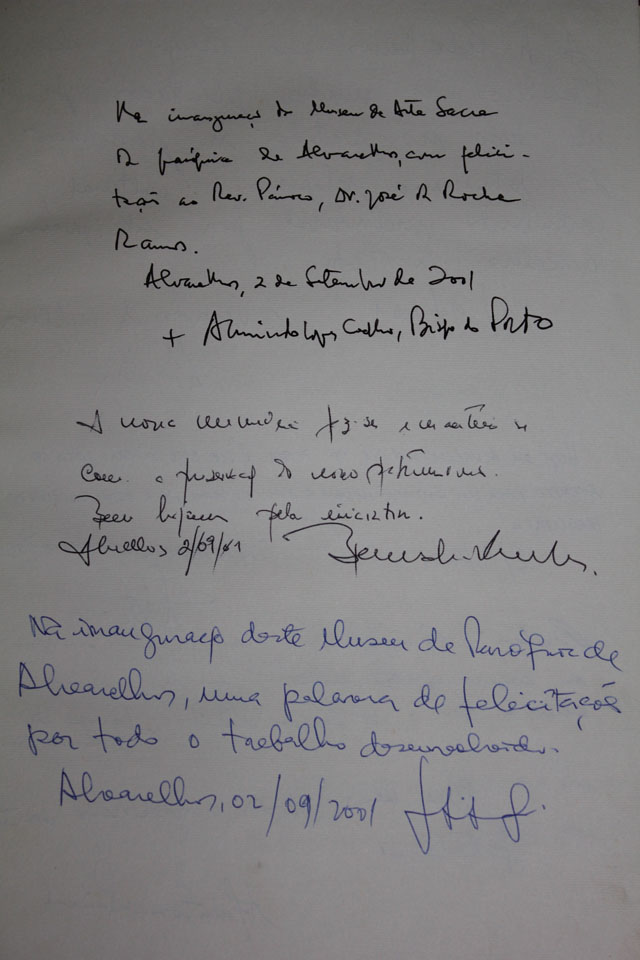 Na inauguraç do Museu de Arte Sacra
da paróquia de Alvarelhos, com felici-
tação ao Rev. Pároco, Dr. José da Rocha
Ramos.
Alvarelhos, 2 de Setembro de 2001
+ Armindo Lopes Coelho, Bispo do Porto
A nossa memória faz-se e
com a do nosso património.
Bem hajam pela iniciativa.
Alvarelhos 2/09/01
Na inauguração deste Museu da Paróquia de
Alvarelhos, uma palavra de felicitações
por todo o trabalho desenvolvido.
Alvarelhos, 02/09/2001